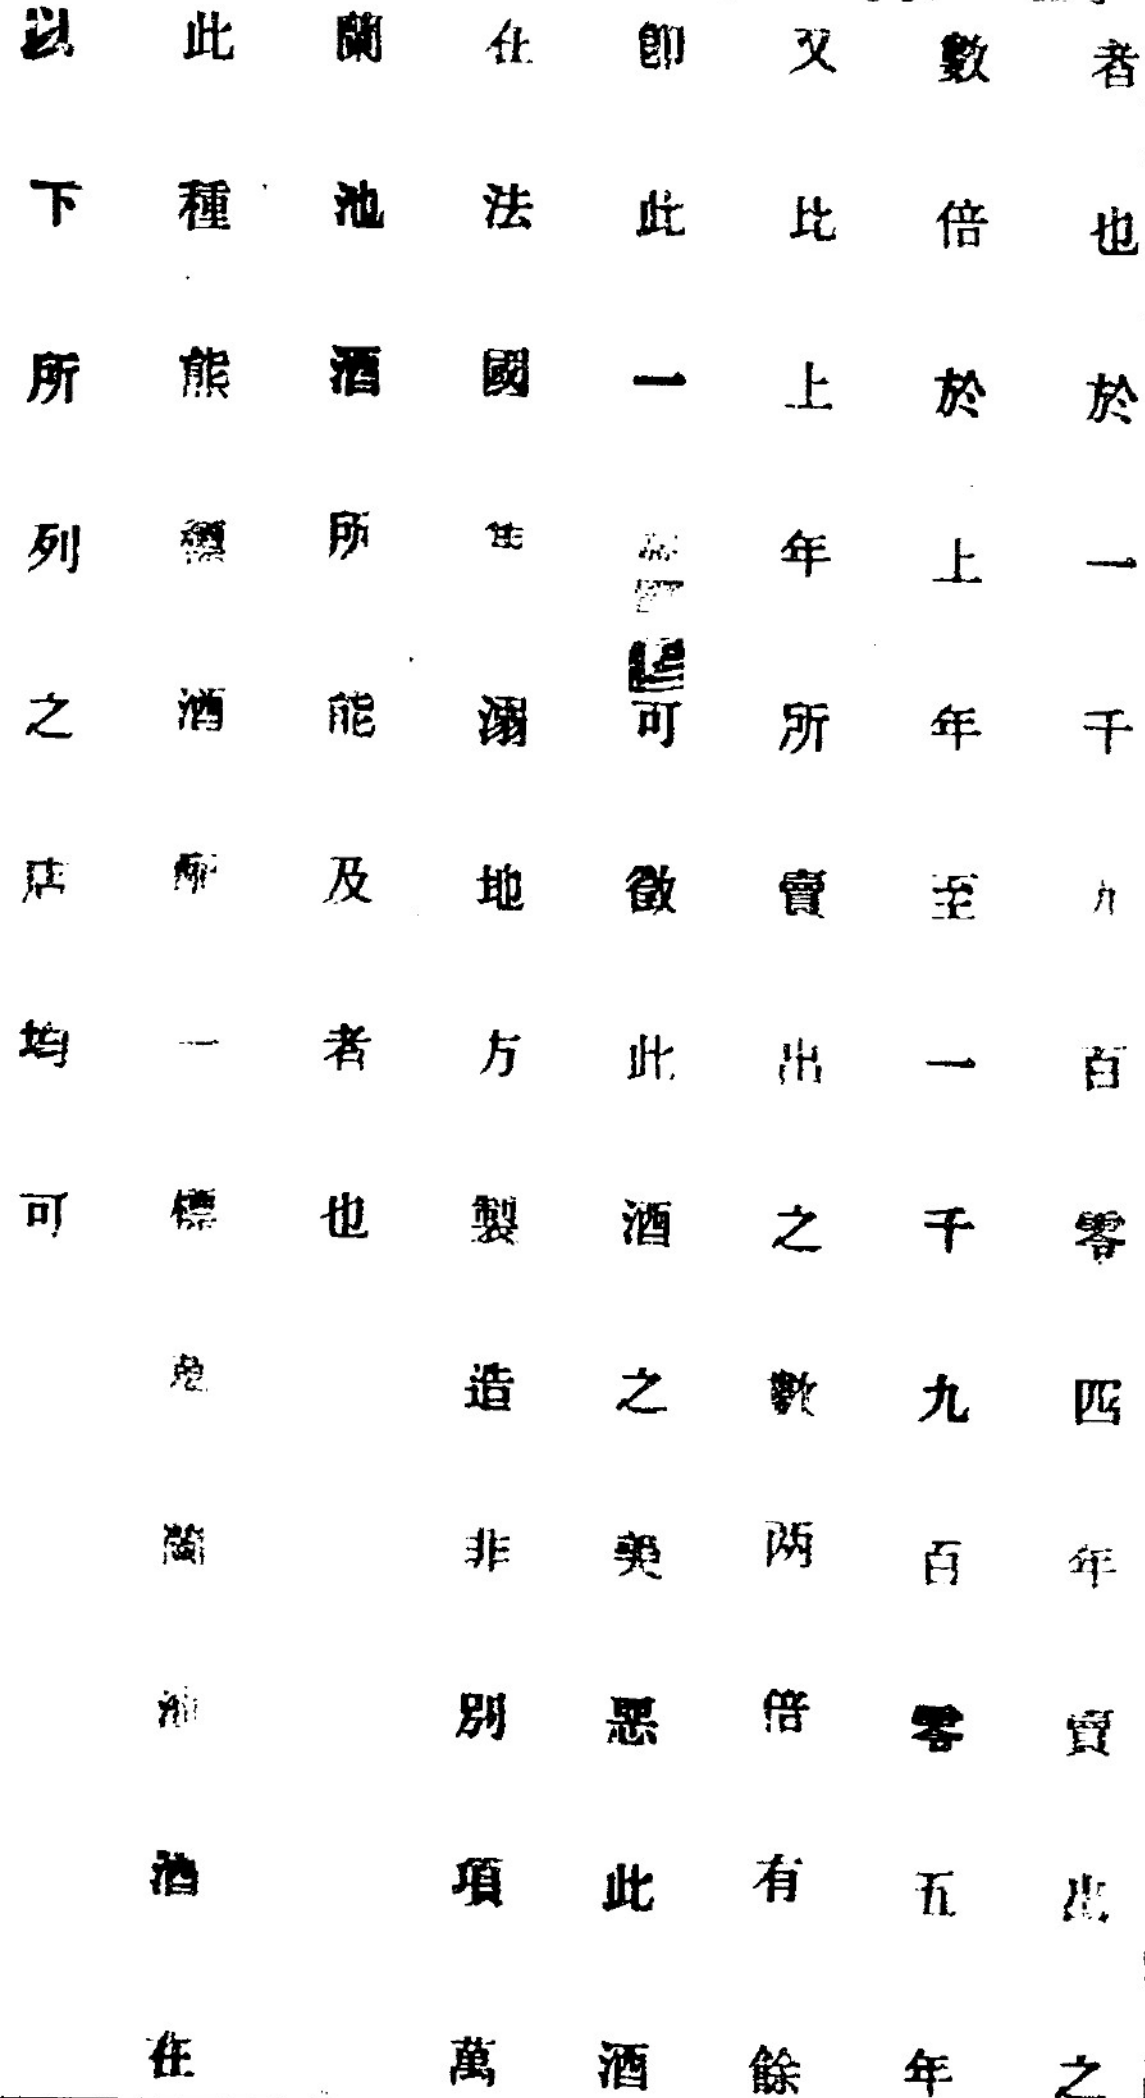 者也於一千九百零四年賣出之
數倍於上年至一千九百零五年
又比上年所賣出之數兩倍有餘
卽此一可徵此酒之美惡此酒
在法國溺地方製造非別項萬
蘭池酒所能及者也
此種熊酒一標蘭酒在
以下所列之店均可